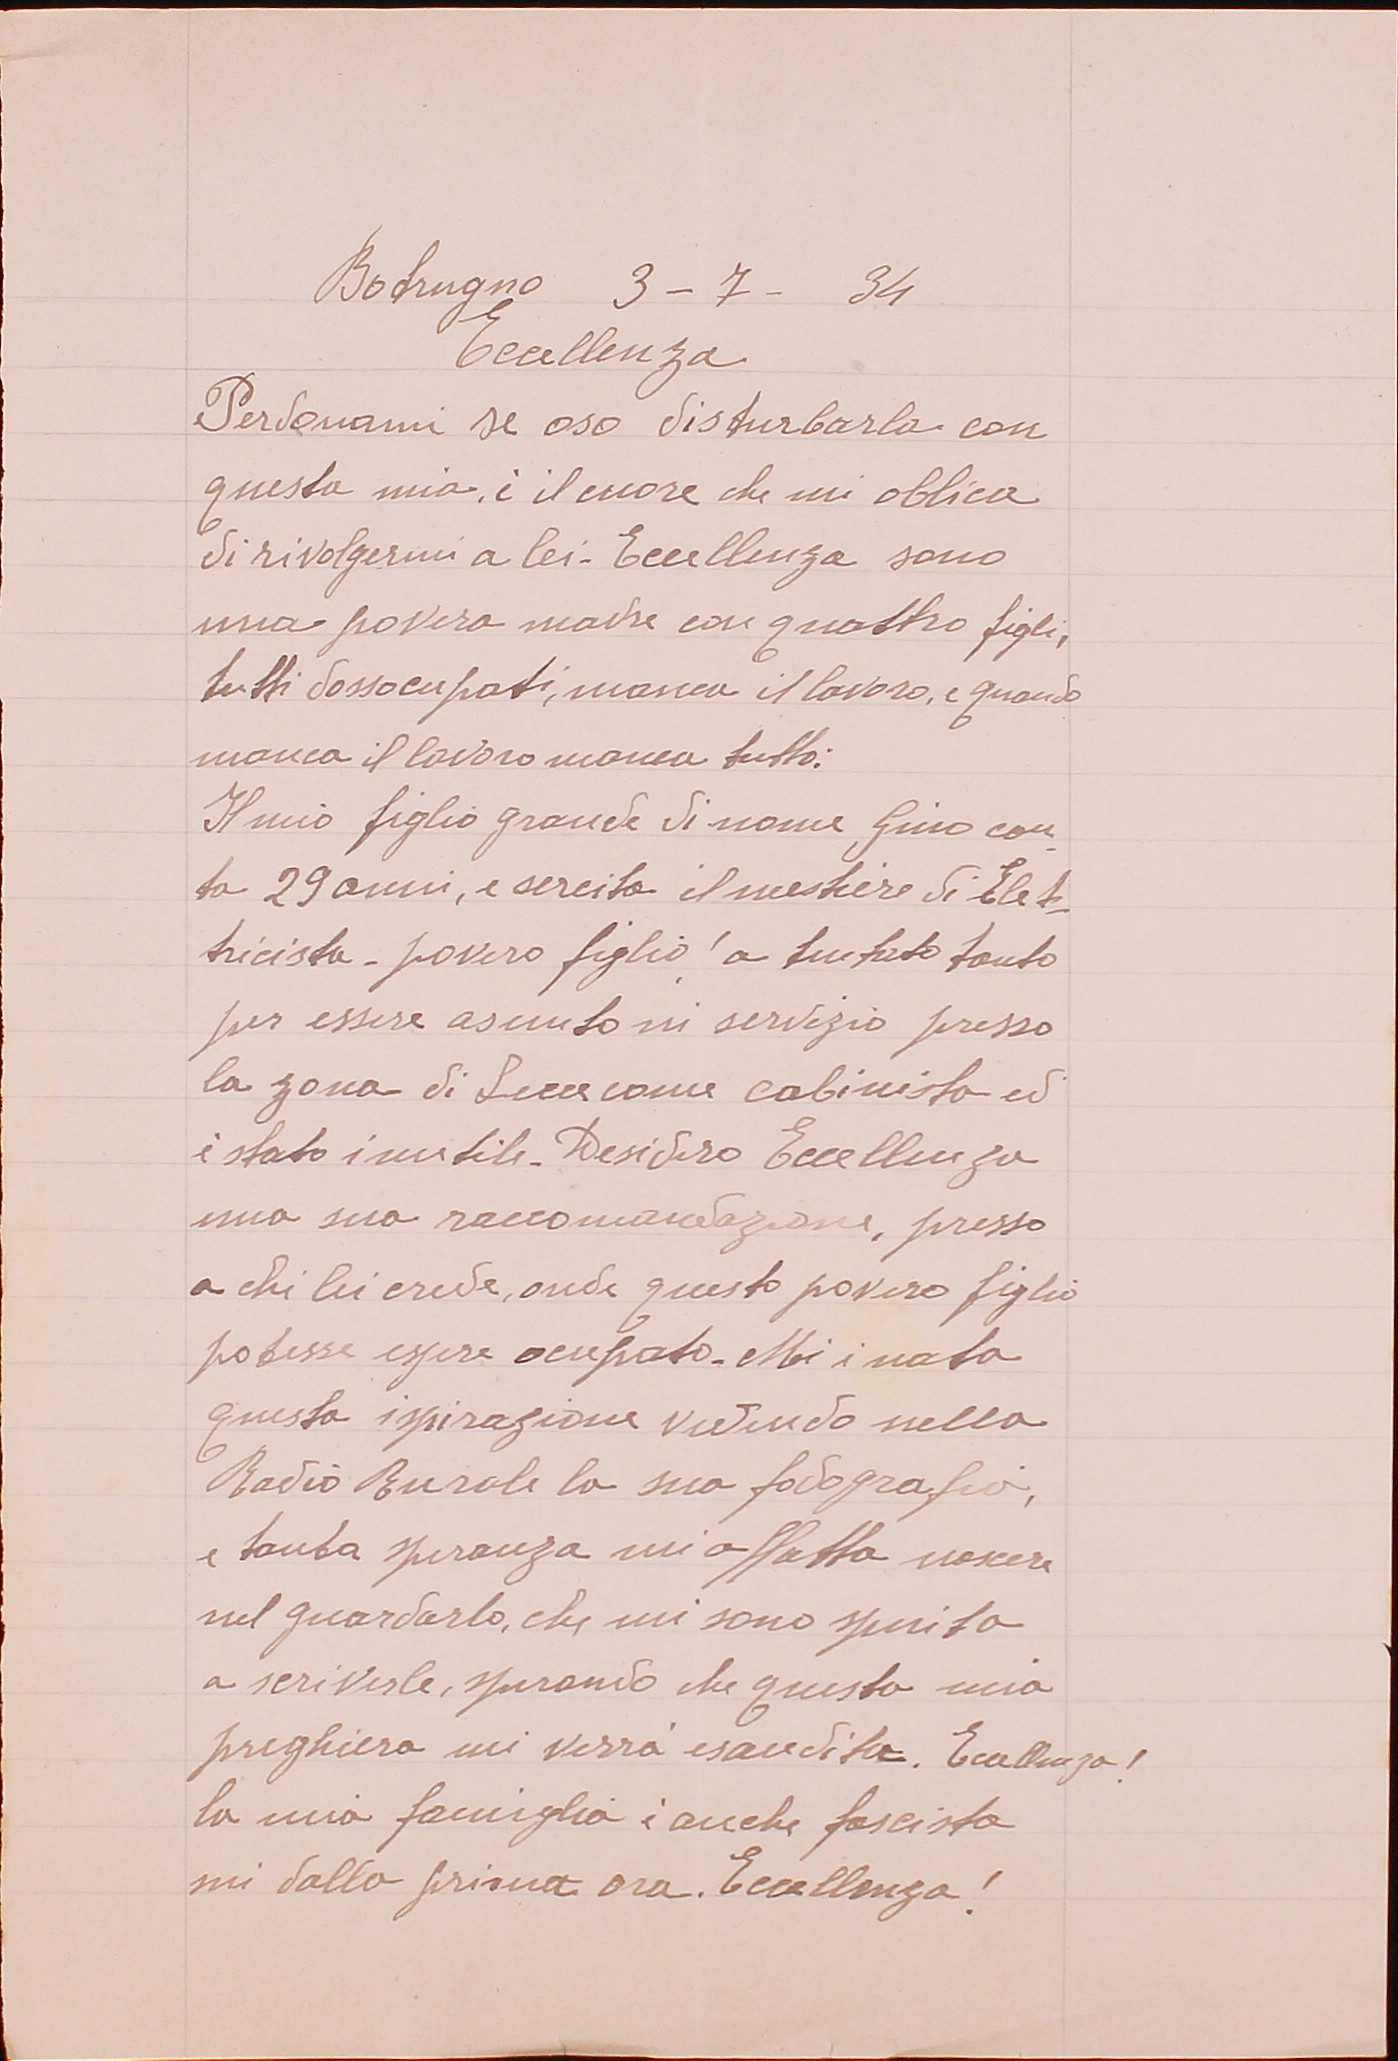 Botrugno 3-7-34
Eccellenza
Perdonami se oso disturbarla con
questa mia, è il cuore che mi oblica
di rivolgermi a lei- Eccellenza sono
una povera madre con quattro figli,
tutti dossocupati, manca il lavoro, e quando
manca il lavoro manca tutto:
Il mio figlio grande di nome Gino con-
ta 29 anni, esercita il mestiere di Elet-
tricista- povero figlio! a tentato tanto
per essere asunto ni servizio presso
la zona di Lecce come cabinista ed
è stato inutile- Desidero Eccellenza
una sua raccomandazione, presso
a chi lei crede, onde questo povero figlio
potesse essere ocupato- Mi i nata
questa ispirazione vedendo nella
Radio Rurale la sua fodografia,
e tanta speranza mi affatto nascere
nel guardarlo, che mi sono spinta
a scriverle, sperando che questa mia
preghiera mi verrà esaudita. Eccellenza!
la mia famiglia è anche fascista
sni dalla prima ora. Eccellenza!